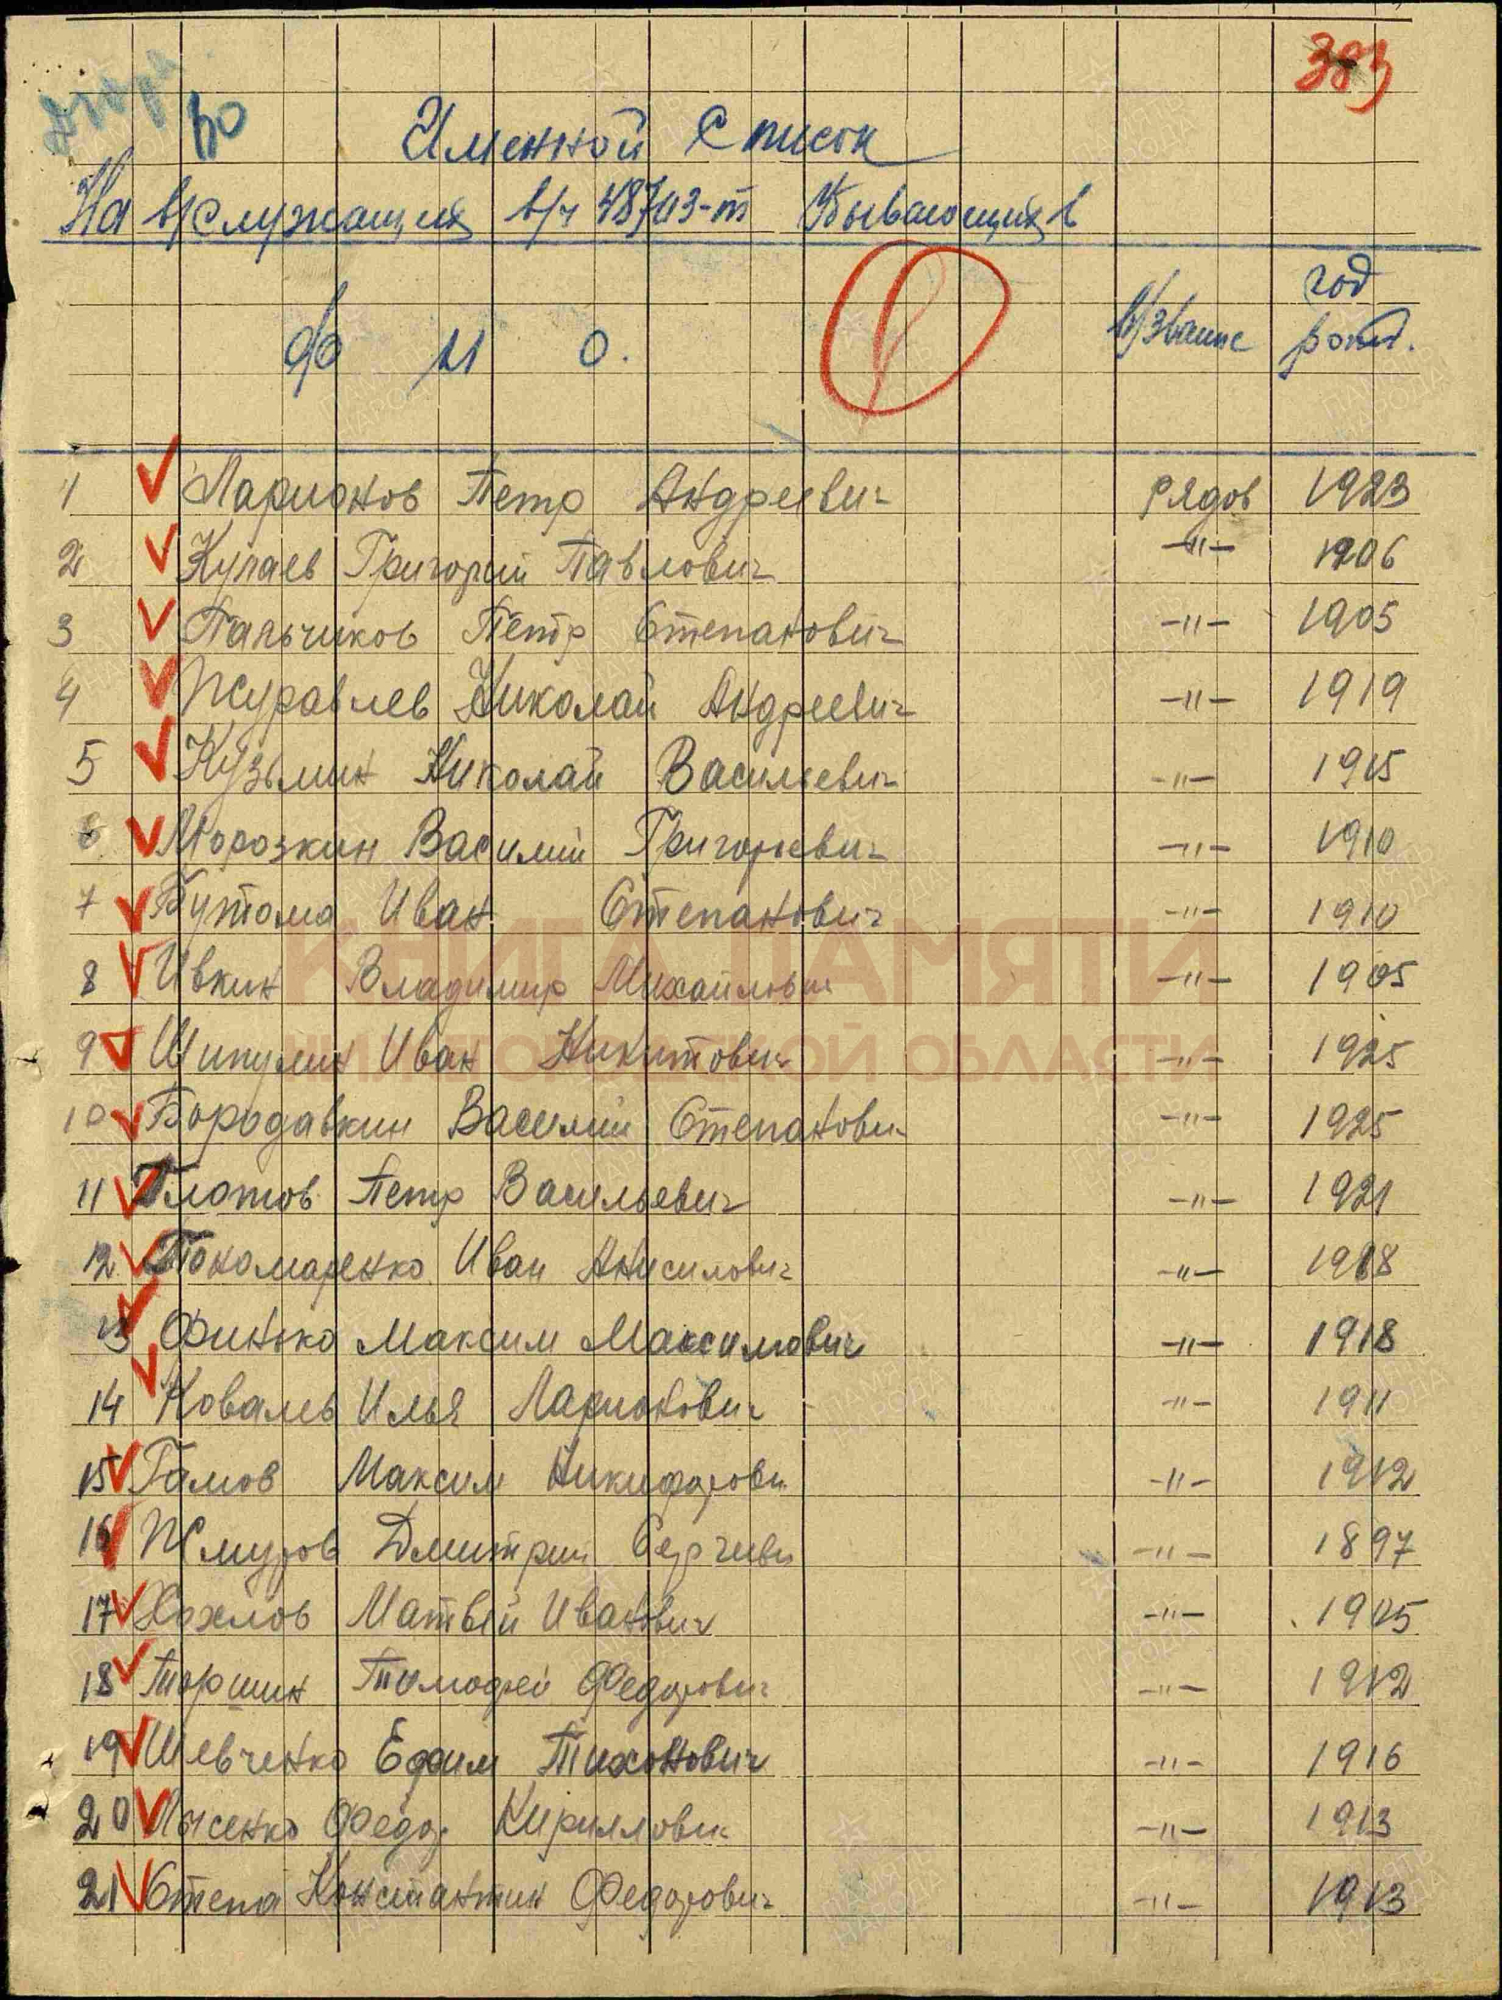 383
80
Именной Список
На в/служащих в/ч 48743-т Убывающих в
Ф И О.
в/звание
год рожд.
1 Ларионов Петр Андреевич рядов 1923
2 Купаев Григорий Павлович -"- 1906
3 Пальчиков Петр Степанович -"- 1905
4 Журавлев Николай Андреевич -"- 1919
5 Кузьмин Николай Васильевич -"- 1915
6 Морозкин Василий Григорьевич -"- 1910
7 Бутома Иван Степанович -"- 1910
8 Ивкин Владимир Михайлович -"- 1905
9 Шипулин Иван Никитович -"- 1925
10 Бородавкин Василий Степанович -"- 1925
11 Глотов Петр Васильевич -"- 1921
12 Пономаренко Иван Анисимович -"- 1918
13 Финько Максим Максимович -"- 1918
14 Ковалев Илья Ларионович -"- 1911
15 Гамов Максим Никифорович -"- 1912
16 Жмуров Дмитрий Сергееви -"- 1897
17 Хохлов Матвей Иванович -"- 1905
18 Торшин Тимофей Федорович -"- 1912
19 Шевченко Ефим Тихонович -"- 1916
20 Лысенко Федор Кириллович -"- 1913
21 Степа Константин Федорович -"- 1913
КНИГА ПАМЯТИ
НИЖЕГОРОДСКОЙ ОБЛАСТИ